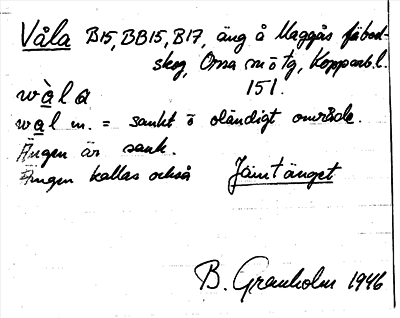 Våla B15, BB15, B17, äng å Maggås fäbod-
skog, Orsa sn o tg, Kopparb. l.
151.
wàla
wal m. = sankt o oländigt område.
Ängen är sank.
Ängen kallas också Jämtänget
B. Granholm 1946